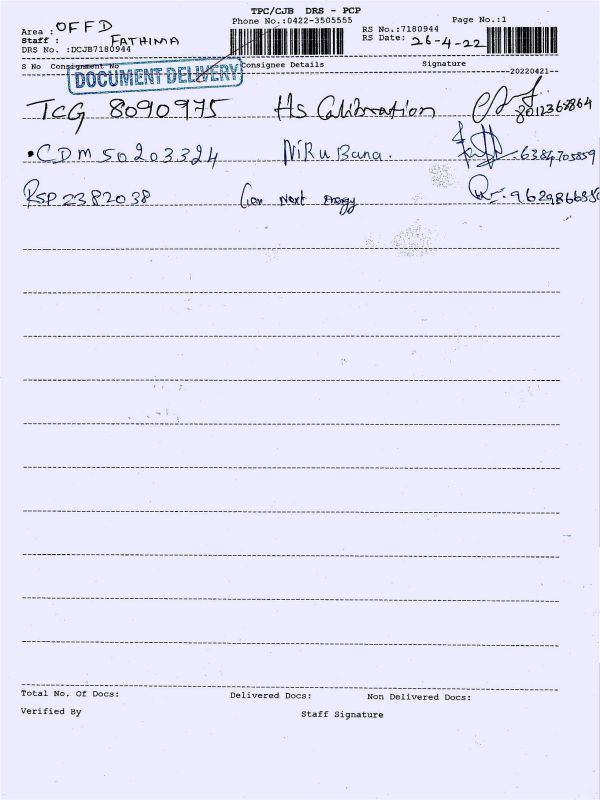 TPC/CJB DRS - PCP
Phone No.:0422-3505555 Page No.:1
Area : OFFD RS No.:7180944
Staff : FATHIMA RS Date: 26-4-22
DRS No. :DCJB7180944
S No Consignment No Consignee Details Signature
DOCUMENT DELIVERY
--20220421--
TCG 8090975 Hs Calibration
•CDM50203324 NiRuBana. 6384705859
RSP2382038 Gen Next energy
Total No. Of Docs: Delivered Docs: Non Delivered Docs:
Verified By Staff Signature